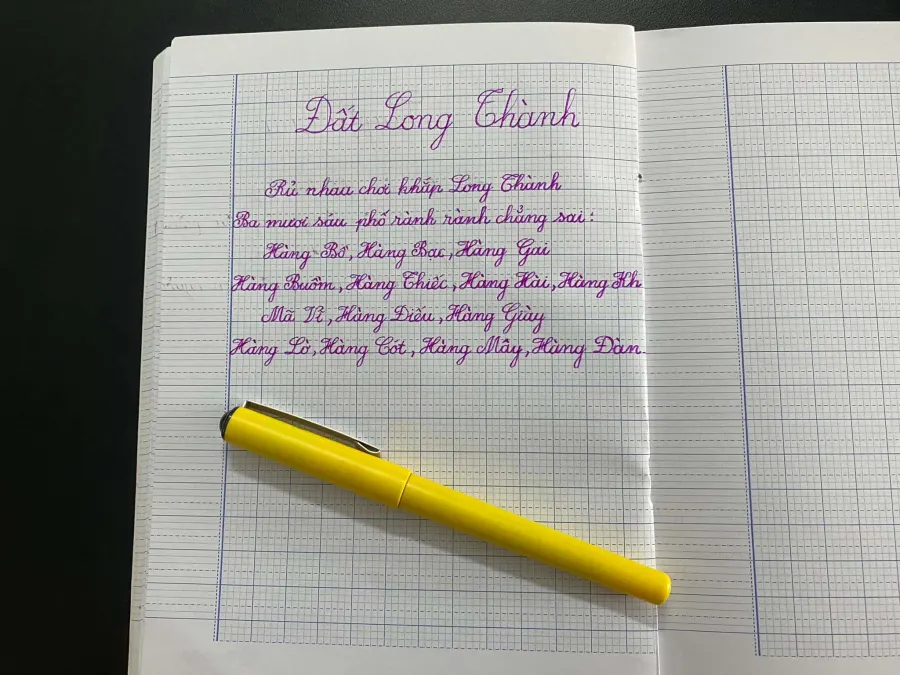 Đất Long Thành
Rủ nhau chơi khắp Long Thành
Ba mươi sáu phố rành rành chẳng sai:
Hàng Bồ, Hàng Bạc, Hàng Gai
Hàng Buồm, Hàng Thiếc, Hàng Hài, Hàng Kh
Mã Vĩ, Hàng Điếu, Hàng Giày
Hàng Lờ, Hàng Cót, Hàng Mây, Hàng Đàn